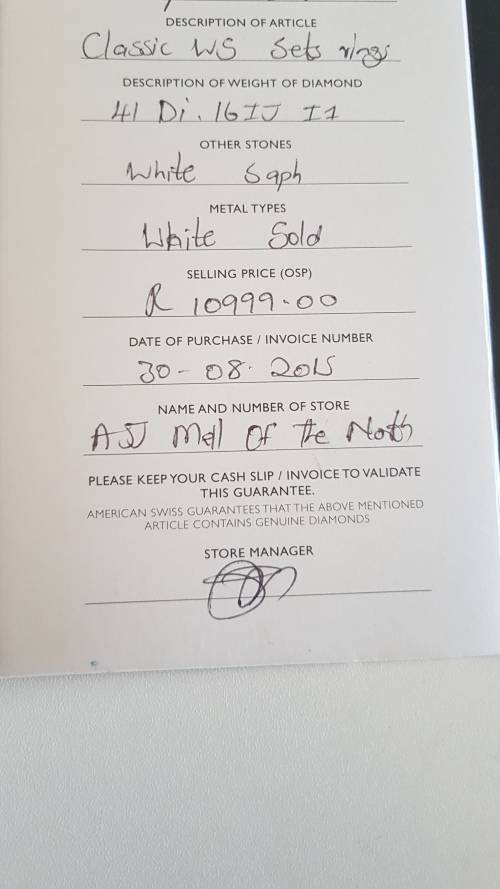 DESCRIPTION OF ARTICLE
Classic WS Sets rings
DESCRIPTION OF WEIGHT OF DIAMOND
41 Di. 16IJ I1
OTHER STONES
White Saph
METAL TYPES
White Gold
SELLING PRICE (OSP)
R 10999.00
DATE OF PURCHASE / INVOICE NUMBER
30-08.2015
NAME AND NUMBER OF STORE
Mall Of The North
PLEASE KEEP YOUR CASH SLIP / INVOICE TO VALIDATE
THIS GUARANTEE.
AMERICAN SWISS GUARANTEES THAT THE ABOVE MENTIONED
ARTICLE CONTAINS GENUINE DIAMONDS
STORE MANAGER